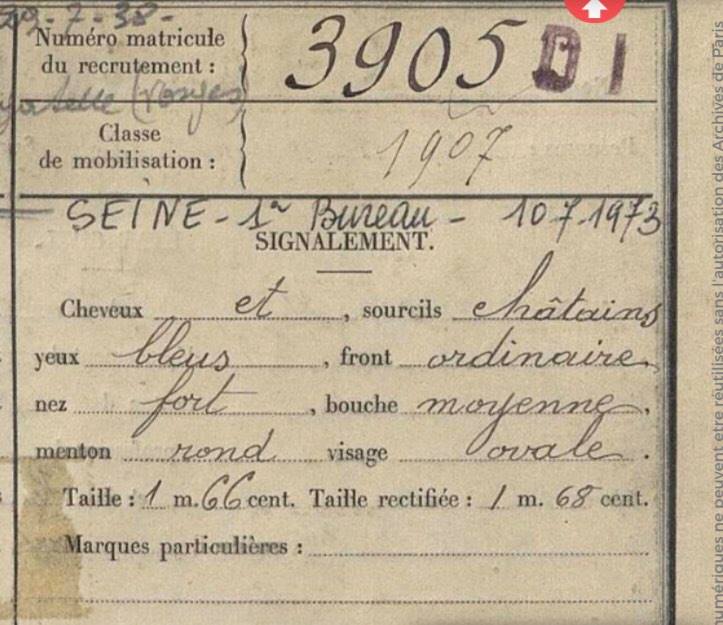 29-7-38-
Numéro matricule
du recrutement :
3905 D1
(Vosges)
Classe
de mobilisation :
1907
SEINE - 1er Bureau - 10.7.1973
SIGNALEMENT.
Cheveux et, sourcils châtains
yeux bleus, front ordinaire,
nez fort, bouche moyenne,
menton rond visage ovale.
Taille : 1 m. 66 cent. Taille rectifiée : 1 m. 68 cent.
Marques particulières :
numériques ne peuvent être réutilisées sans l'autorisation des Archives de Paris